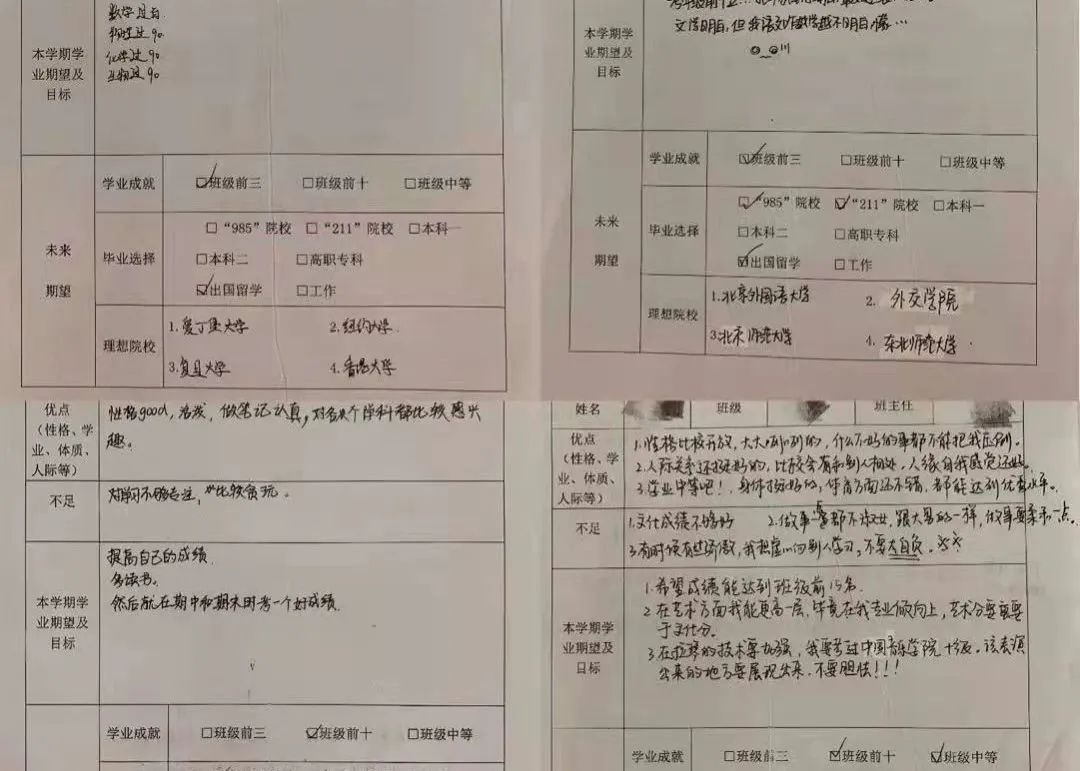 数学过百.
物理过90.
化学过90.
生物过90
本学期学
业期望及
目标
未来
期望
学业成就 ☑班级前三 □班级前十 □班级中等
毕业选择
□“985”院校 □“211”院校 □本科一
□本科二 □高职专科
☑出国留学 □工作
理想院校
1.爱丁堡大学 2.纽约大学.
3.复旦大学 4.香港大学
本学期学
业期望及
目标
未来
期望
学业成就 ☑班级前三 □班级前十 □班级中等
毕业选择
☑“985”院校 ☑“211”院校 □本科一
□本科二 □高职专科
☑出国留学 □工作
理想院校
1.北京外国语大学 2. 外交学院
3.北京师范大学 4. 东北师范大学
优点
(性格、学
业、体质、
人际等)
性格good,活泼,做笔记认真,对各个学科都比较感兴
趣。
不足
比较贪玩。
本学期学
业期望及
目标
提高自己的成绩
多读书。
然后就在期中和期末时考一个好成绩
学业成就 □班级前三 ☑班级前十 □班级中等
姓名 班级 班主任
优点
(性格、学
业、体质、
人际等)
1.性格比较开放,大大咧咧的,什么不好的事都不能把我压倒。
2.人际关系还挺好的,比较会有和别人相处,人缘自我感觉还好。
3.学业中等吧!,身体挺好的,体育方面还不错,都能达到优秀水平。
不足
1.文化成绩不够好 2.做事都不淑女,跟大男的一样,做事要柔和一点。
3.有时候有些骄傲,我想虚心向别人学习,不要太自负。
本学期学
业期望及
目标
1.希望成绩能达到班级前15名.
2.在艺术方面我能更高一层,毕竟在我专业倾向上,艺术分要重要
于文化分。
3.在拉琴的技术要加强,我要考过中国音乐学院十级。该表演
出来的地方要展现出来,不要胆怯!!!
学业成就 □班级前三 ☑班级前十 ☑班级中等